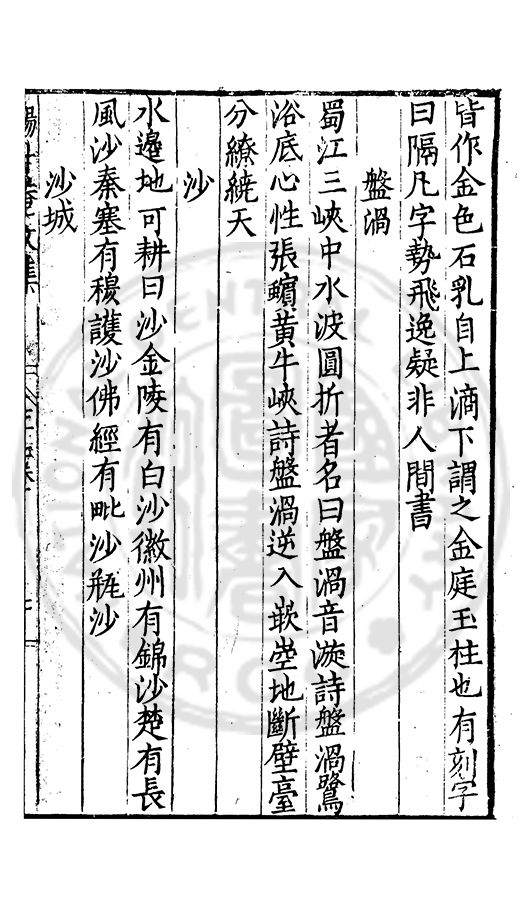 皆作金色石乳自上滴下謂之金庭玉柱也有刻字
曰隔凡字勢飛逸疑非人間書
盤渦
蜀江三峽中水波圓折者名曰盤渦音漩詩盤渦鷺
浴底心性張蠙黃牛峽詩盤渦逆入嵌崆地斷壁臺
分繚繞天
沙
水邊地可耕曰沙金陵有白沙徽州有錦沙楚有長
風沙秦塞有穆護沙佛經有毗沙瓶沙
沙城